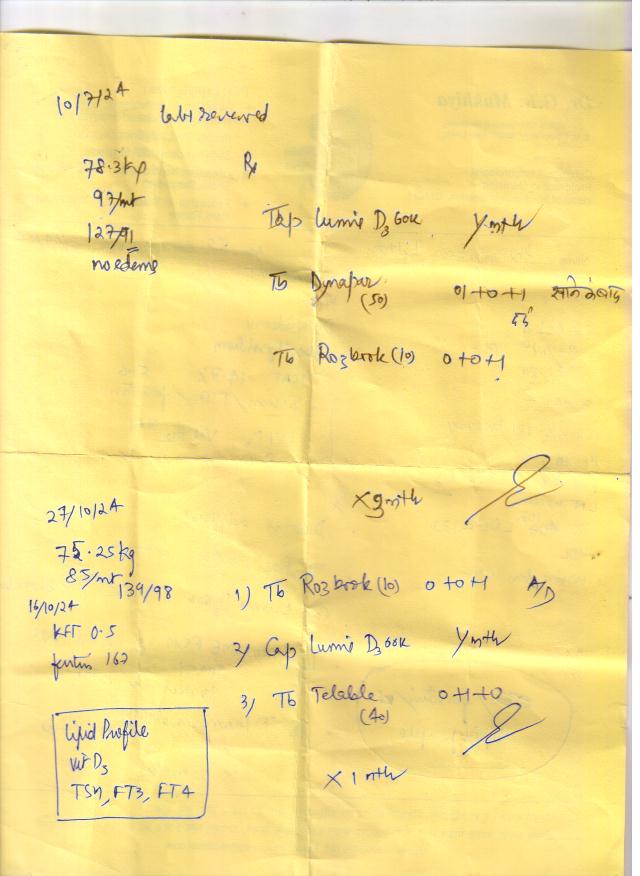 10/7/24
labs reviewed
78.3kg
Rx
97/mt
127/91
no edema
Cap Lumia D3 60K
Tb Dynapar
(50)
0+0+1
दर्द
Tb Rozbook (10) 0+0+1
27/10/24
75.25kg
85/mt
139/98
1) Tb Rozbook (10) 0+0+1 A/D
16/10/24
KFT 0.5
2) Cap Lumia D3 60K
3) Tb
(40)
0+1+0
Lipid Profile
Vit D3
TSH, FT3, FT4
x 1 mth